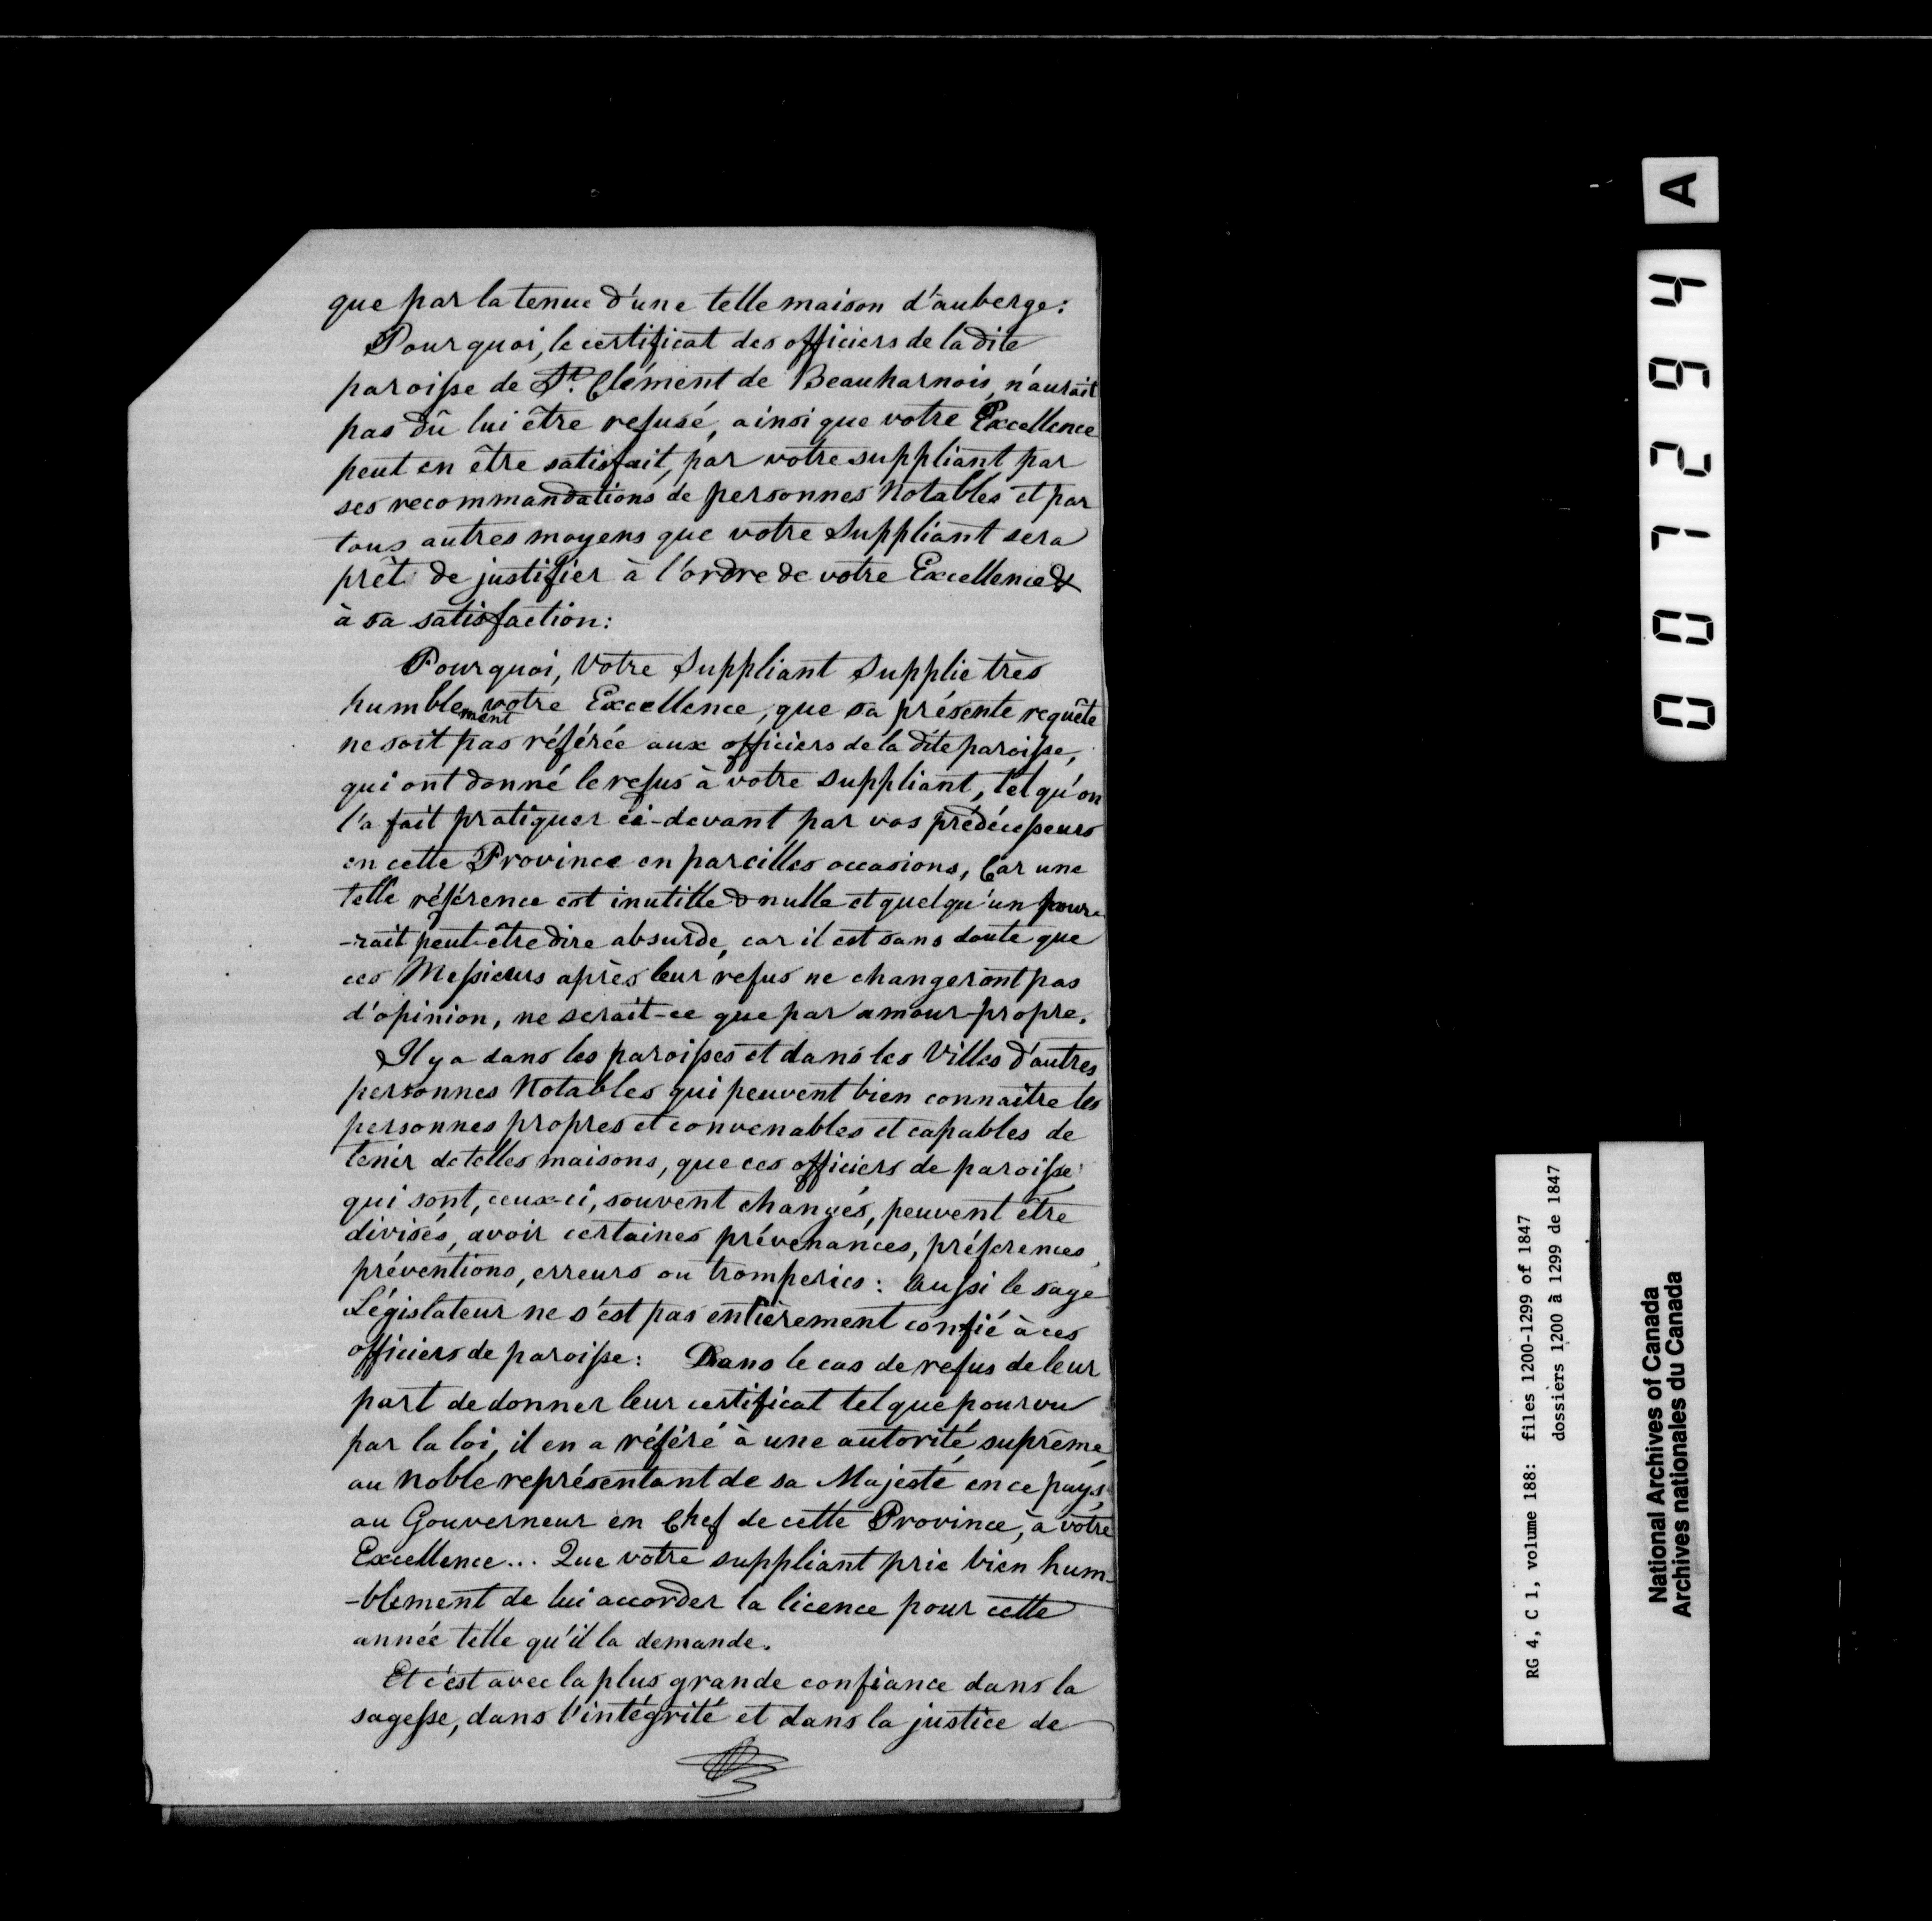 que par la tenue d'une telle maison d'auberge:
Pourquoi, le certificat des officiers de la dite
paroisse de St. Clément de Beauharnois, n'aurait
pas dû lui être refusé, ainsi que votre Excellence
peut en être satisfait, par votre suppliant, par
ses recommandations de personnes Notables et par
tous autres moyens que votre Suppliant sera
prêt de justifier à l'ordre de votre Excellence &
à sa satisfaction:
Pourquoi, Votre Suppliant Supplie très
humblement votre Excellence, que sa présente requête
ne soit pas référée aux officiers de la dite paroisse,
qui ont donné le refus à votre suppliant, tel qu'on
l'a fait pratiquer ci-devant par vos prédécesseurs
en cette Province en pareilles occasions, Car une
telle référence est inutille & nulle et quelqu'un pour
-rait peut-être dire absurde, car il est sans doute que
ces Messieurs après leur refus ne changeront pas
d'opinion, ne serait-ce que par amour-propre.
Il y a dans les paroisses et dans les Villes d'autres
personnes Notables qui peuvent bien connaître les
personnes propres et convenables et capables de
tenir de telles maisons, que ces officiers de paroisse,
qui sont, ceux-ci, souvent changés, peuvent être
divisés, avoir certaines prévenances, préférences,
préventions, erreurs ou tromperies: Aussi le sage
Législateur ne s'est pas entièrement confié à ces
officiers de paroisse: Dans le cas de refus de leur
part de donner leur certificat tel que pourvu
par la loi, il en a référé à une autorité suprême,
au Noble représentant de sa Majesté en ce pays,
au Gouverneur en Chef de cette Province, à votre
Excellence... Que votre suppliant prie bien hum-
-blement de lui accorder la licence pour cette
année telle qu'il la demande.
Et c'est avec la plus grande confiance dans la
sagesse, dans l'intégrité et dans la justice de
A
0071294
RG 4, C 1, volume 188: files 1200-1299 of 1847
dossiers 1200 à 1299 de 1847
National Archives of Canada
Archives nationales du Canada